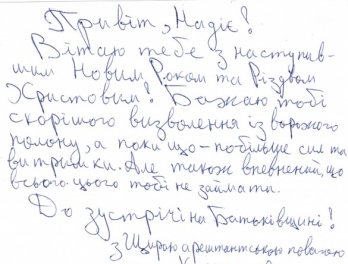 Привіт, Надіє!
Вітаю тебе з наступив-
шим Новим Роком та Різдвом
Христовим! Бажаю тобі
скорішого визволення із ворожого
полону, а поки що - побільше сил та
витримки. Але також впевнений, що
всього цього тобі не займати.
До зустрічі на Батьківщині!
З щирою арештантською повагою